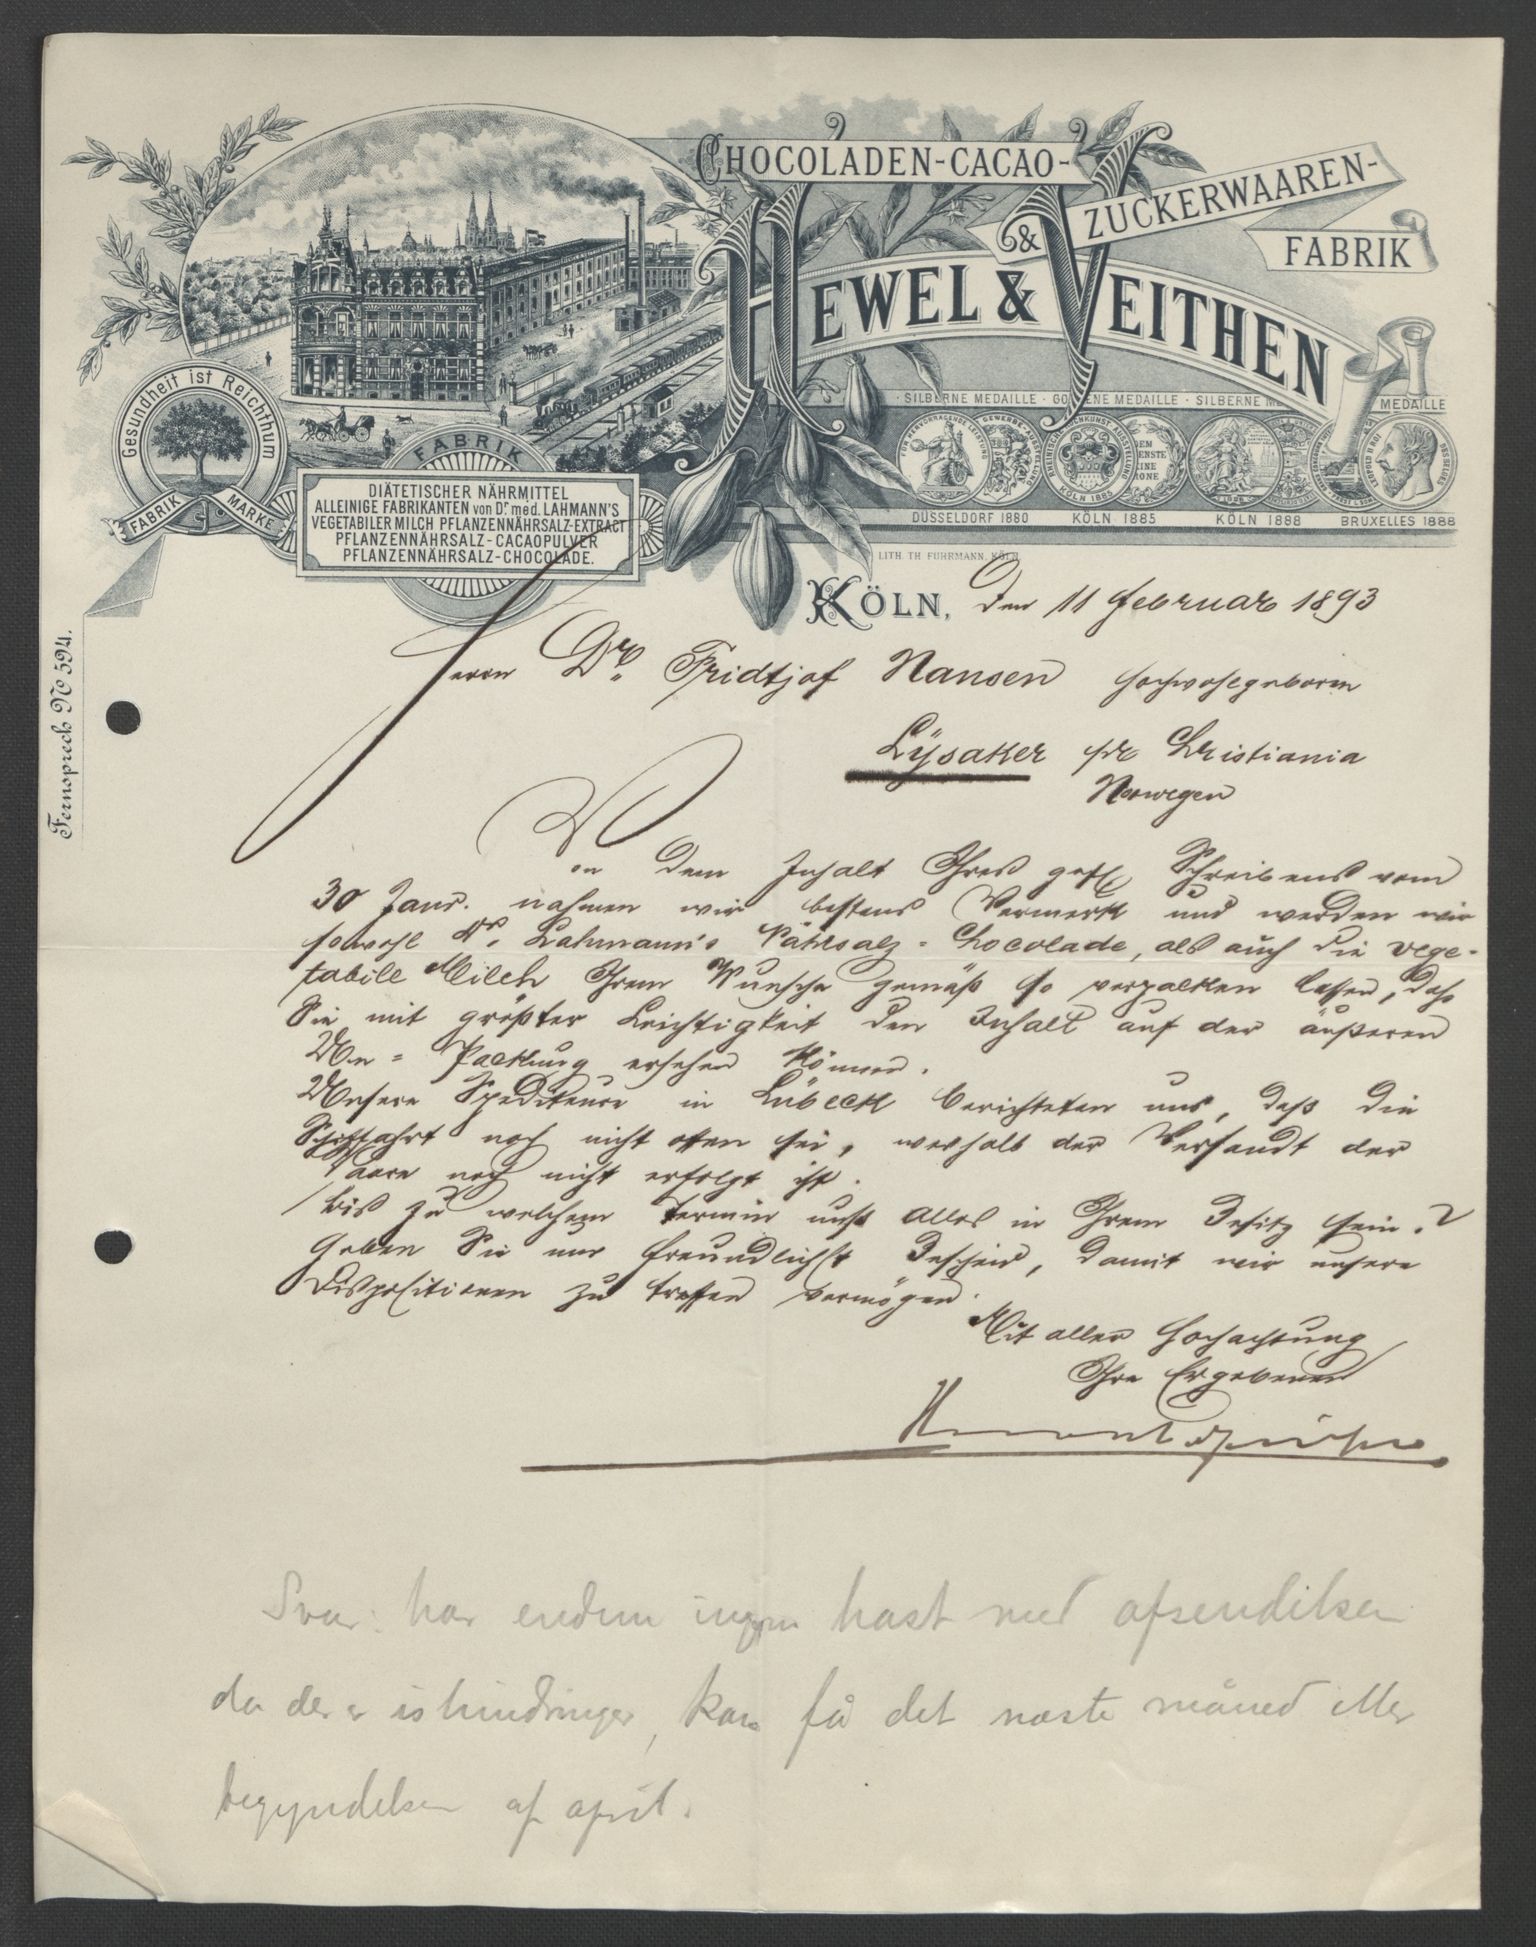 CHOCOLADEN-CACAO-
& ZUCKERWAAREN-
FABRIK
HEWEL & VEITHEN
Gesundheit ist Reichthum
FABRIK MARKE
FABRIK
DIÄTETISCHER NÄHRMITTEL
ALLEINIGE FABRIKANTEN von Dr. med. LAHMANN'S
VEGETABILER MILCH PFLANZENNÄHRSALZ-EXTRACT
PFLANZENNÄHRSALZ-CACAOPULVER
PFLANZENNÄHRSALZ-CHOCOLADE.
· SILBERNE MEDAILLE · GOLDENE MEDAILLE · SILBERNE MEDAILLE
DÜSSELDORF 1880 KÖLN 1885 KÖLN 1888 BRUXELLES 1888
LITH. TH. FUHRMANN, KÖLN
Fernspreck No 594.
KÖLN, den 11 Februar 1893
Herrn Dr. Fridtjof Nansen Hochwohlgeboren
Lÿsaker pr Christiania
Norwegen
Von dem Inhalt Ihres gefl. Schreibens vom
30 Janr. nahmen wir bestens Vermerk und werden wir
sowohl Dr. Lahmann's Nährsalz-Chocolade, als auch die vege-
tabile Milch Ihrem Wunsche gemäß so verpacken lassen, daß
Sie mit größter Leichtigkeit den Inhalt auf der äußeren
Um-Packung ersehen können.
Unsere Spediteure in Lübeck berichteten uns, daß die
Schiffahrt noch nicht offen sei, weshalb der Versandt der
Waare noch nicht erfolgt ist.
Bis zu welchem Termin muß Alles in Ihrem Besitz sein?
Geben Sie uns freundlichst Bescheid, damit wir unsere
Dispositionen zu treffen vermögen.
Mit aller Hochachtung
Ihre Ergebenen
Svar: har endnu ingen hast med afsendelsen
da der er ishindringer, kan få det næste måned eller
begyndelsen af april.